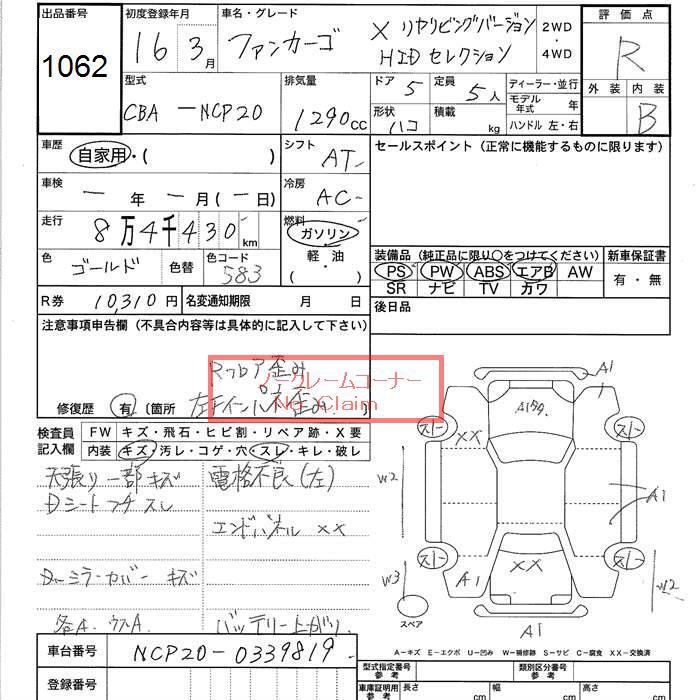 出品番号
1062
初度登録年月
16 3月
車名・グレード
ファンカーゴ
X リヤリビングバージョン
HID セレクション
2WD
・
4WD
評価点
R
外装 内装
B
型式
CBA-NCP20
排気量
1290cc
ドア 5
定員 5人
形状 ハコ
積載 kg
ディーラー・並行
モデル年式 年
ハンドル 左・右
車歴
自家用・( )
シフト
AT
セールスポイント(正常に機能するものに限ります)
車検
ー年ー月(ー日)
冷房
AC
走行
8万4千430km
燃料
ガソリン・
軽油・
( )
色
ゴールド
色替
色コード
583
装備品(純正品に限り○をつけてください)
PS PW ABS エアB AW
SR ナビ TV カワ
新車保証書
有・無
R券 10,310円
名変通知期限 月 日
後日品
注意事項申告欄(不具合内容等は具体的に記入して下さい)
Rフロア歪み
ノークレームコーナー
No Claim
修復歴 有 〔箇所
検査員記入欄
FW キズ・飛石・ヒビ割・リペア跡・X要
内装 キズ・汚レ・コゲ・穴・スレ・キレ・破レ
天張り一部キズ
電格不良(左)
Dシートフチスレ
エンドパネル XX
Dミラーカバー キズ
各A. ウスA.
バッテリー上がり
A1
ストー
XX
ストー
W2
A1
ストー
ストー
W3
A1
XX
W2
スペア
A1
A-キズ E-エクボ U-凹み W-補修跡 S-サビ C-腐食 XX-交換済
車台番号
NCP20-0339819
登録番号
型式指定番号
参考
類別区分番号
参考
車庫証明用
参考
長さ cm
幅 cm
高さ cm